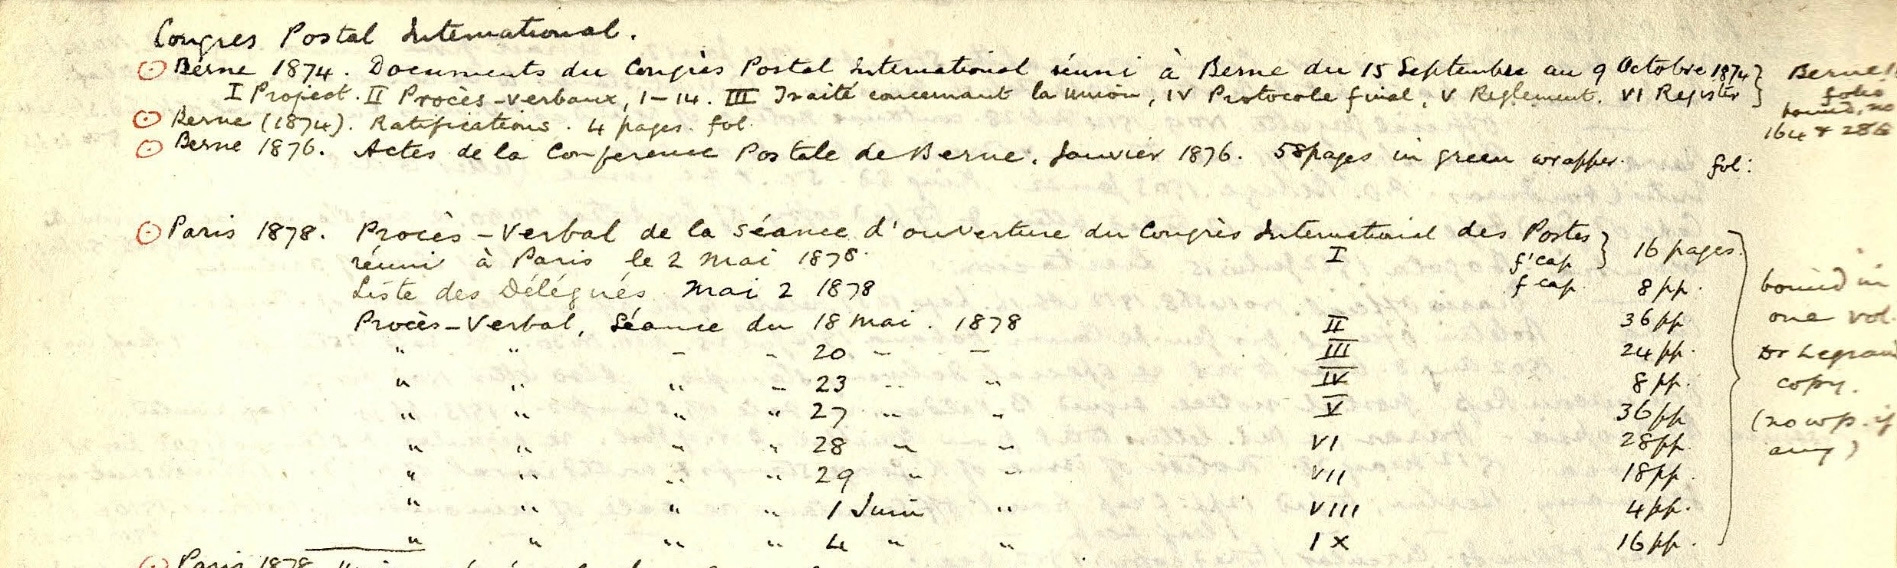 Congres Postal International.
Berne 1874. Documents du Congrès Postal International réuni à Berne du 15 Septembre au 9 Octobre 1874 } Berne
I Project. II Procès-verbaux, 1-14. III Traité concernant la Union, IV Protocole final, V Reglement. VI Register } folio
Berne (1874). Ratifications. 4 pages. fol. bound, no
164 & 286
Berne 1876. Actes de la Conference Postale de Berne. Janvier 1876. 58 pages in green wrapper. fol:
Paris 1878. Procès-Verbal de la Séance d'ouverture du Congrès International des Postes } 16 pages.
réuni à Paris le 2 Mai 1878. I f'cap
Liste des Délégués Mai 2 1878 f'cap. 8 pp. bound in
Procès-Verbal, Séance du 18 Mai. 1878 II 36 pp one vol.
" " - " 20 - - III 24 pp. Dr Legrand
" " " - 23 - " IV 8 pp. copy.
" " " " 27 " - V 36 pp (no wp. if
" " " " 28 " " VI 28 pp. any)
" " " " 29 " " VII 18 pp.
" " " " 1 Juin " VIII 4 pp.
" " " " 4 " " IX 16 pp.
Paris 1878